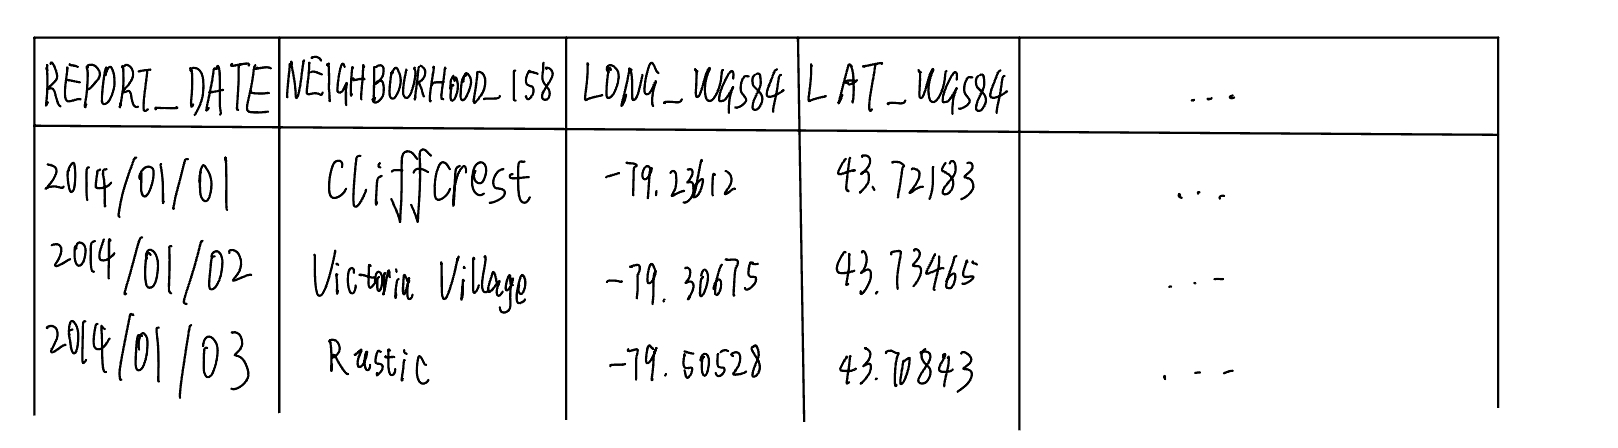 REPORT_DATE NEIGHBOURHOOD_158 LONG_WGS84 LAT_WGS84 ...
2014/01/01 Cliffcrest -79.23612 43.72183 ...
2014/01/02 Victoria Village -79.30675 43.73465 ...
2014/01/03 Rustic -79.50528 43.70843 ...